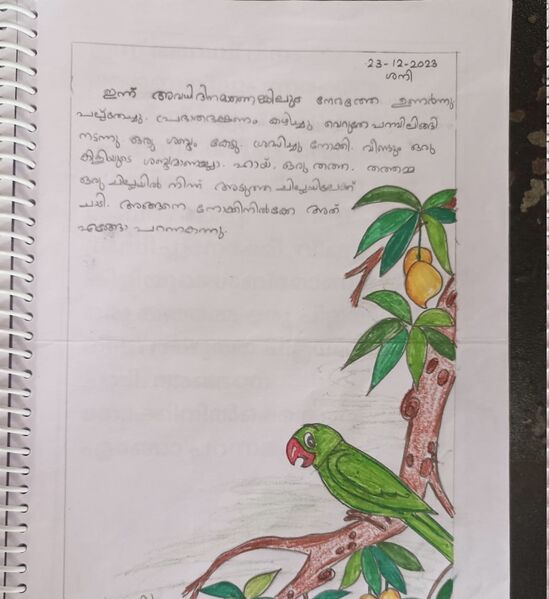 23-12-2023
ശനി
ഇന്ന് അവധിദിനമാണെങ്കിലും നേരത്തേ ഉണർന്നു
പല്ലുതേച്ചു. പ്രഭാതഭക്ഷണം കഴിച്ചു വെറുതേ പറമ്പിലിറങ്ങി
നടന്നു ഒരു ശബ്ദം കേട്ടു. ശ്രദ്ധിച്ചു നോക്കി. വീണ്ടും ഒരു
കിളിയുടെ ശബ്ദമാണല്ലോ. ഹായ്, ഒരു തത്ത. തത്തമ്മ
ഒരു ചില്ലയിൽ നിന്ന് അടുത്ത ചില്ലയിലേക്ക്
ചാടി. അങ്ങനെ നോക്കിനിൽക്കേ അത്
എങ്ങോ പറന്നകന്നു.